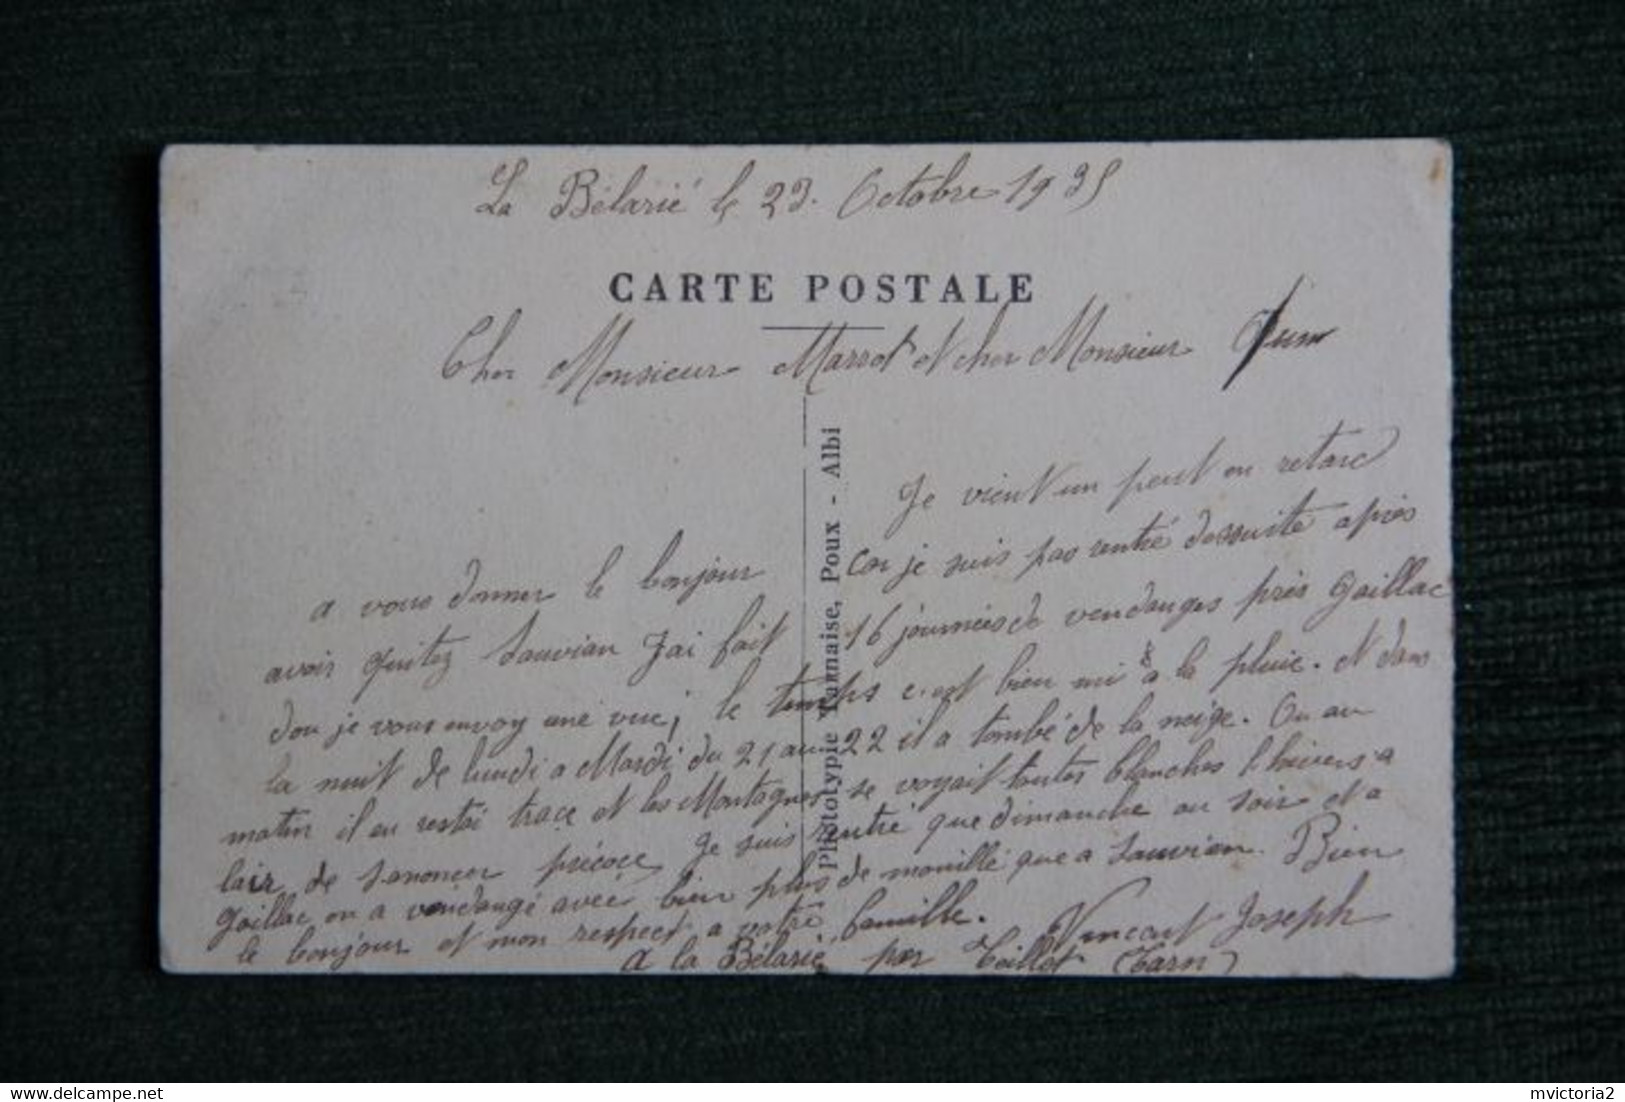 La Bélarié le 23. Octobre 1935
CARTE POSTALE
Cher Monsieur Marrot et cher Monsieur
Je vient un peut en retard
a vous donner le bonjour car je suis pas rentré dessuite après
avoir quitez Sauvian J'ai fait 16 journées de vendanges près Gaillac
dou je vous envoy une vue, le temps c'est bien mi a la pluie. Et dans
la nuit de lundi a Mardi du 21 au 22 il a tombé de la neige. On au
matin il en restai trace et les Montagnes se voyait toutes blanches l'hivers a
lair de sanoncer précoce Je suis rentré que dimanche au soir et a
Gaillac on a vendangé avec bien plus de mouillé que a Sauvian. Bien
le bonjour et mon respect a votre famille. Vincent Joseph
a la Bélarié par Teillet (Tarn)
Phototypie Tarnaise, Poux - Albi
mvictoria2